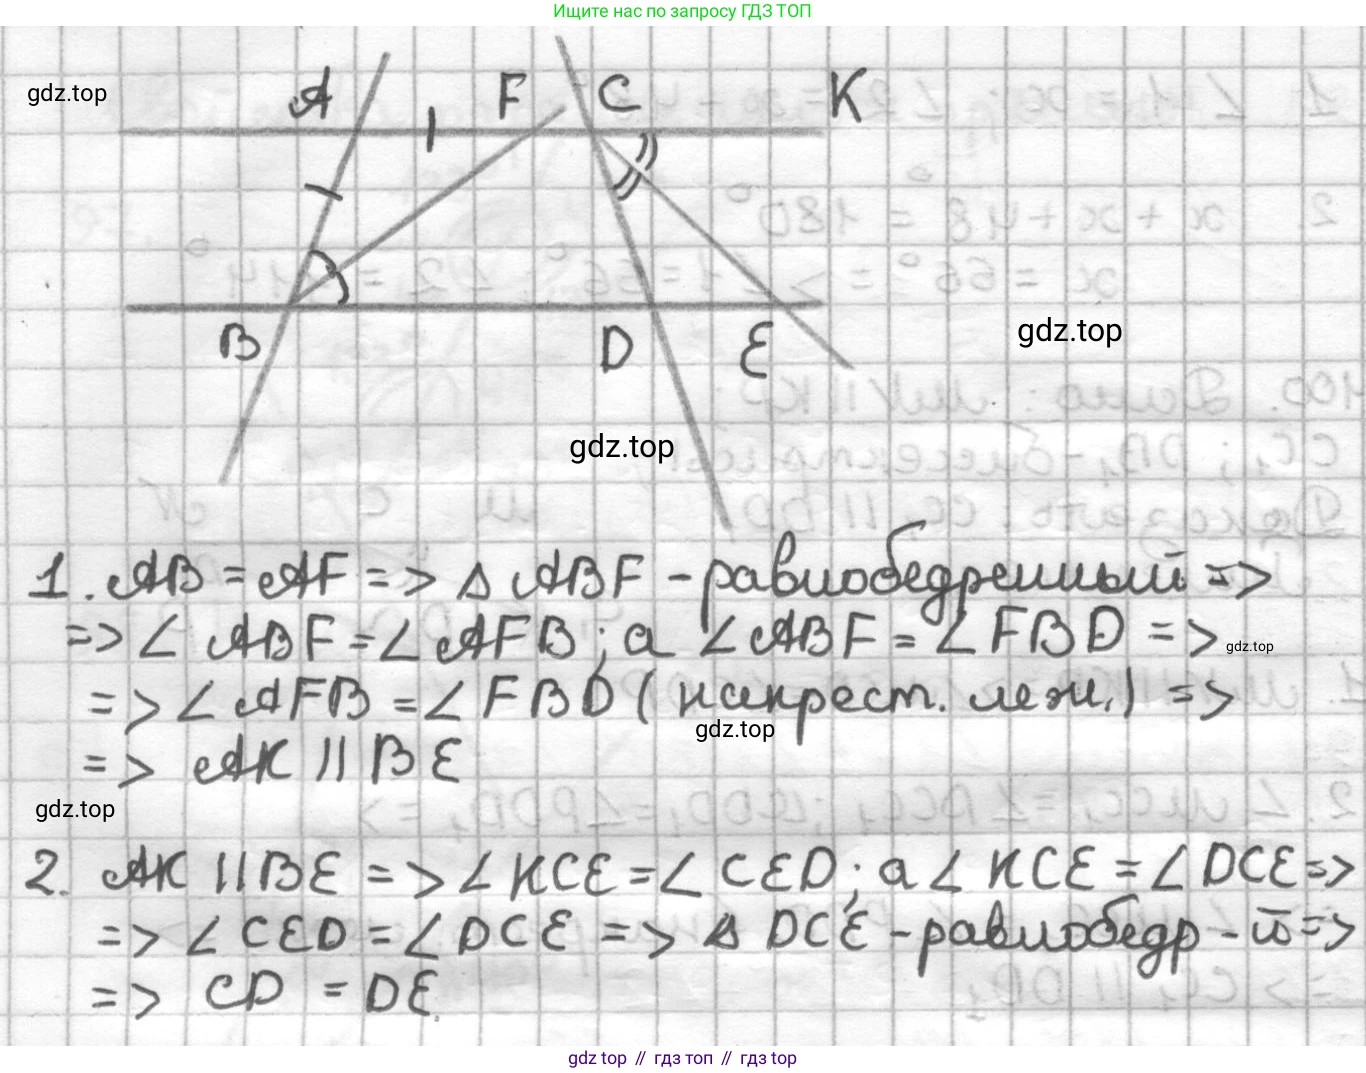 Ищите нас по запросу ГДЗ ТОП
gdz.top
A F C K
B D E
gdz.top
gdz.top
1. AB = AF => Δ ABF - равнобедренный =>
=> ∠ ABF = ∠ AFB; а ∠ ABF = ∠ FBD =>
gdz.top
=> ∠ AFB = ∠ FBD (накрест. леж.) =>
gdz.top
=> AK || BE
gdz.top
2. AK || BE => ∠ KCE = ∠ CED; а ∠ KCE = ∠ DCE =>
=> ∠ CED = ∠ DCE => Δ DCE - равнобедр-й =>
=> CD = DE.
gdz.top // гдз топ // гдз top